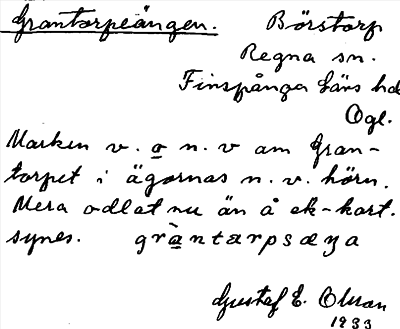 Grantorpeängen. Börstorp
Regna sn.
Finspånga läns hd
Ögl.
Marken v. o n. v om Gran-
torpet i ägornas n. v. hörn.
Mera odlat nu än å ek-kart.
synes. gràntarpsæŋa
Gustaf E. Olsson
1933